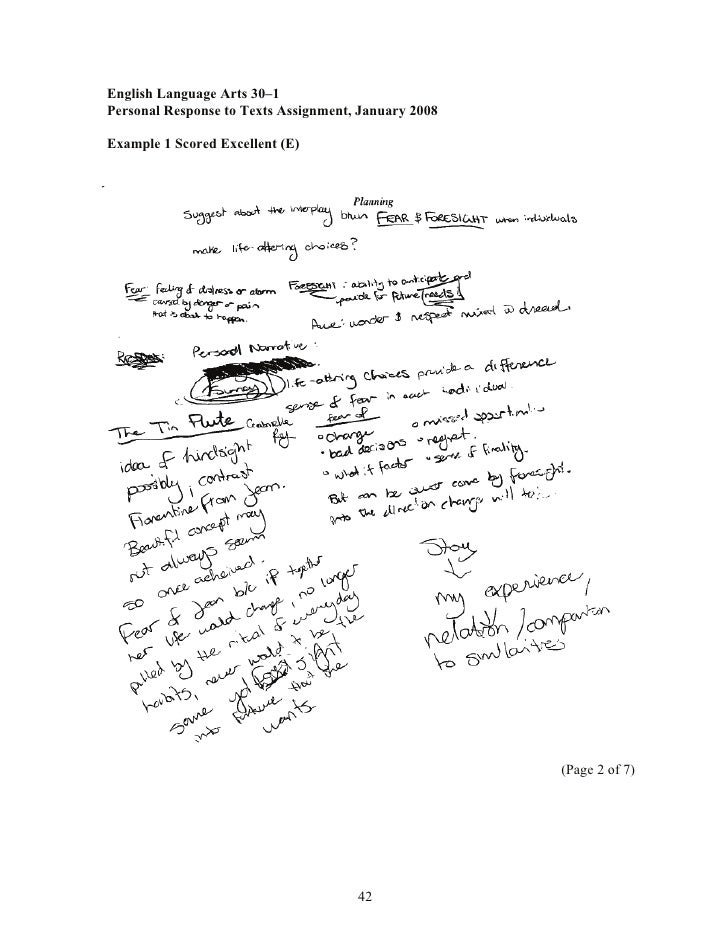 English Language Arts 30–1
Personal Response to Texts Assignment, January 2008
Example 1 Scored Excellent (E)
Planning
Suggest about the interplay btwn FEAR & FORESIGHT when individuals
make life-altering choices?
Fear: Feeling of distress or alarm
caused by danger or pain
that is about to happen.
FORESIGHT: ability to anticipate and
provide for future needs
Awe: wonder & respect mixed w dread.
Personal Narrative:
life-altering choices provide a difference
sense of fear in each individual.
The Tin Flute Gabrielle
Roy
idea of hindsight
possibly, contrast
Florentine from Jean.
Beautiful concept may
not always seem
so once acheived.
Fear of Jean b/c if together
her life would change, no longer
pulled by the ritual of everyday
habits, never would it be the
same yet foresight
into future that she
wants
fear of
• change
• bad decisions
• what if factor
• missed opportunities
• regret.
• sense of finality.
But can be over come by foresight.
into the direction change will
Story
↓
my experience,
relation/comparison
to similarites
(Page 2 of 7)
42